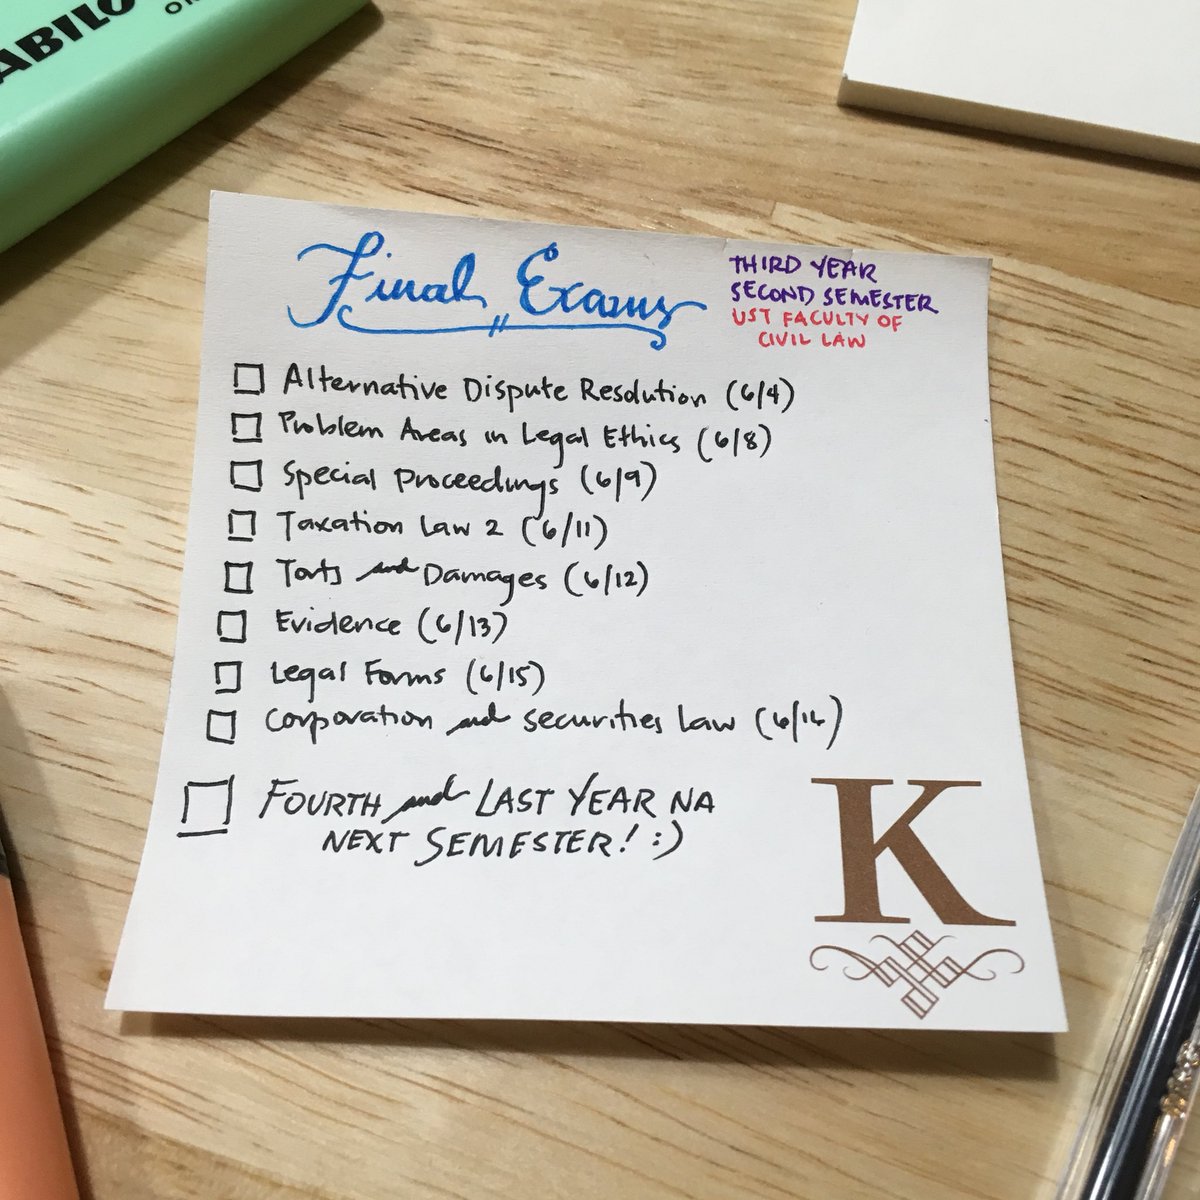 ABILO
Final Exams
THIRD YEAR
SECOND SEMESTER
UST FACULTY OF
CIVIL LAW
Alternative Dispute Resolution (6/4)
Problem Areas in Legal Ethics (6/8)
Special Proceedings (6/9)
Taxation Law 2 (6/11)
Torts and Damages (6/12)
Evidence (6/13)
Legal Forms (6/15)
Corporation and Securities Law (6/16)
FOURTH and LAST YEAR NA
NEXT SEMESTER! :)
K